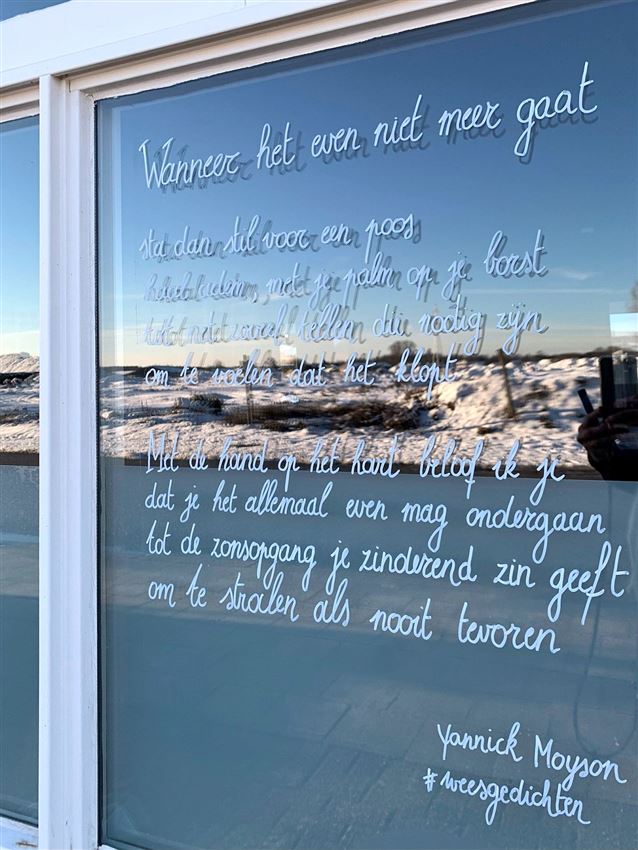 Wanneer het even niet meer gaat
stat dan stil voor een poos
met je palm op je borst
net zoveel tellen die nodig zijn
om te voelen dat het klopt
Met de hand op het hart beloof ik je
dat je het allemaal even mag ondergaan
tot de zonsopgang je zinderend zin geeft
om te stralen als nooit tevoren
Yannick Moyson
#weesgedichten